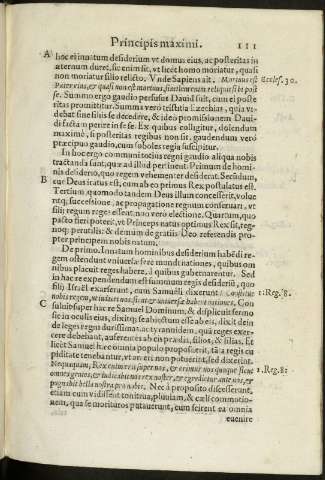 Principis maximi. 111
A hoc ei innatum desiderium vt domus eius, ac posteritas in
æternum duret, sic enim fit, vt licèt homo moriatur, quasi
non moriatur filio relicto. Vnde Sapiens ait. Mortuus est Eccles. 30.
Pater eius, & quasi non est mortuus, similem enim reliquit sibi post
se. Summo ergo gaudio perfusus Dauid fuit, cum ei poste
ritas promittitur. Summa verò tristitia Ezechias, quia vi-
debat sine filijs se decedere, & ideo promissionem Daui-
di factam perire in se. Ex quibus colligitur, dolendum
maximè, si posteritas regibus non sit, gaudendum verò
præcipuo gaudio, cum soboles regia suscipitur.
In hoc ergo communi totius regni gaudio aliqua nobis
tractanda sunt, quæ ad illud pertinent. Primum de homi-
nis desiderio, quo regem vehementer desiderat. Secundum,
B cur Deus iratus est, cum ab eo primus Rex postulatus est.
Tertium, quomodo tandem Deus illum concesserit, volue
ritq; successione, ac propagatione regnum conseruari, vt
filij regum reges essent, non verò electione. Quartum, quo
pacto fieri poterit, vt Princeps natus optimus Rex sit, reg-
noq; perutilis: & demum de gratijs Deo referendis pro-
pter principem nobis natum.
De primo. Innatum hominibus desiderium habendi re-
gem ostendunt vniuersæ ferè mundi nationes, quibus om
nibus placuit reges habere, à quibus gubernarentur. Sed
in hac re expendendum est summum regis desiderium, quo
filij Israël exarserunt, cum Samuëli dixerunt: Constitue 1. Reg. 8.
nobis regem, vt iudicet nos, sicut & vniuersæ habent nationes. Con
C suluit super hac re Samuel Dominum, & displicuit sermo
sic in oculis eius, dixitq; se abiectum esse ab eis, dixit dein
de leges regni durissimas, ac tyrannidem, qua reges exer-
cere debebant, auferentes ab eis prædia, filios, & filias. Et
licèt Samuel hæc omnia populo proposuerit, tanta regis cu
piditate tenebantur, vt terreri non potuerint, sed dixerint.
Nequaquam, Rex enim erit super nos, & erimus nos quoque sicut 1. Reg. 8.
omnes gentes, & iudicabit nos rex noster, & egredietur ante nos, et
pugnabit bella nostra pro nobis. Nec à proposito discesserunt,
etiam cum vidissent tonitrua, pluuiam, & cæli commotio-
nem, qua se morituros putauerunt, cum scirent ea omnia
euenire